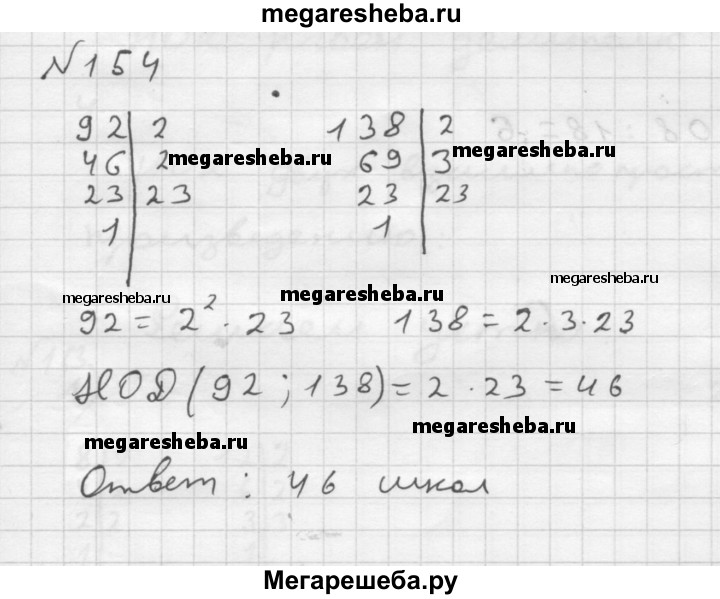 megaresheba.ru
№154
92 | 2 138 | 2
46 | 2 megaresheba.ru 69 | 3 megaresheba.ru
23 | 23 23 | 23
1 | 1 |
megaresheba.ru megaresheba.ru megaresheba.ru
92 = 2² · 23 138 = 2 · 3 · 23
НОД (92 ; 138) = 2 · 23 = 46
megaresheba.ru megaresheba.ru
Ответ : 46 школ
Мегарешеба.ру